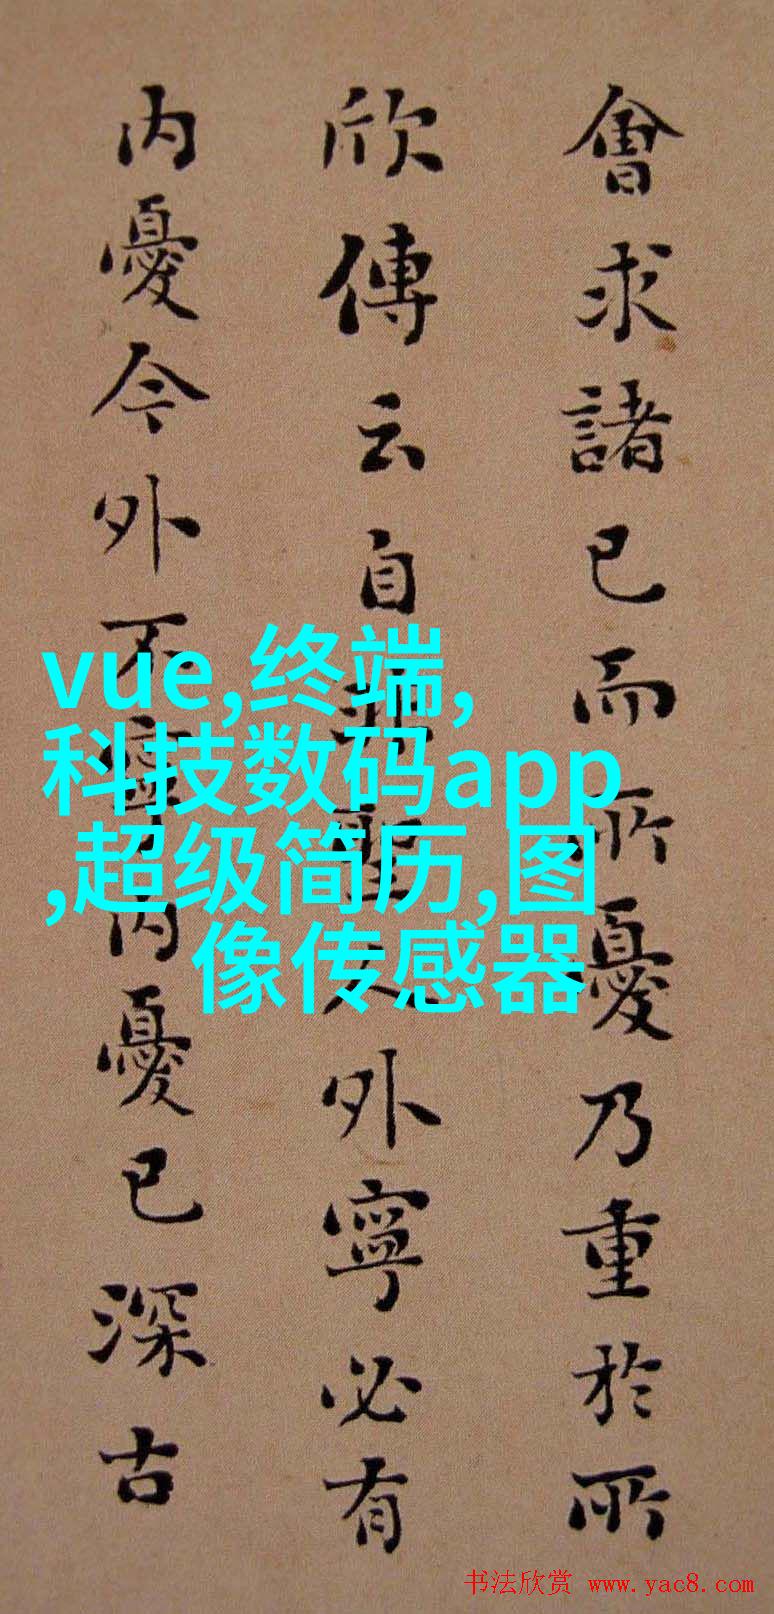 會求諸已而所憂乃重於所
欣傳云自非聖人外寧必有
内憂今外不寧内憂已深古
vue,终端,
科技数码app
,超级简历,图
像传感器
书法欣赏 www.yac8.com